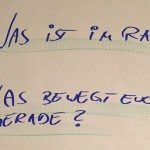 WAS IST IM RA
WAS BEWEGT EUC
GERADE?